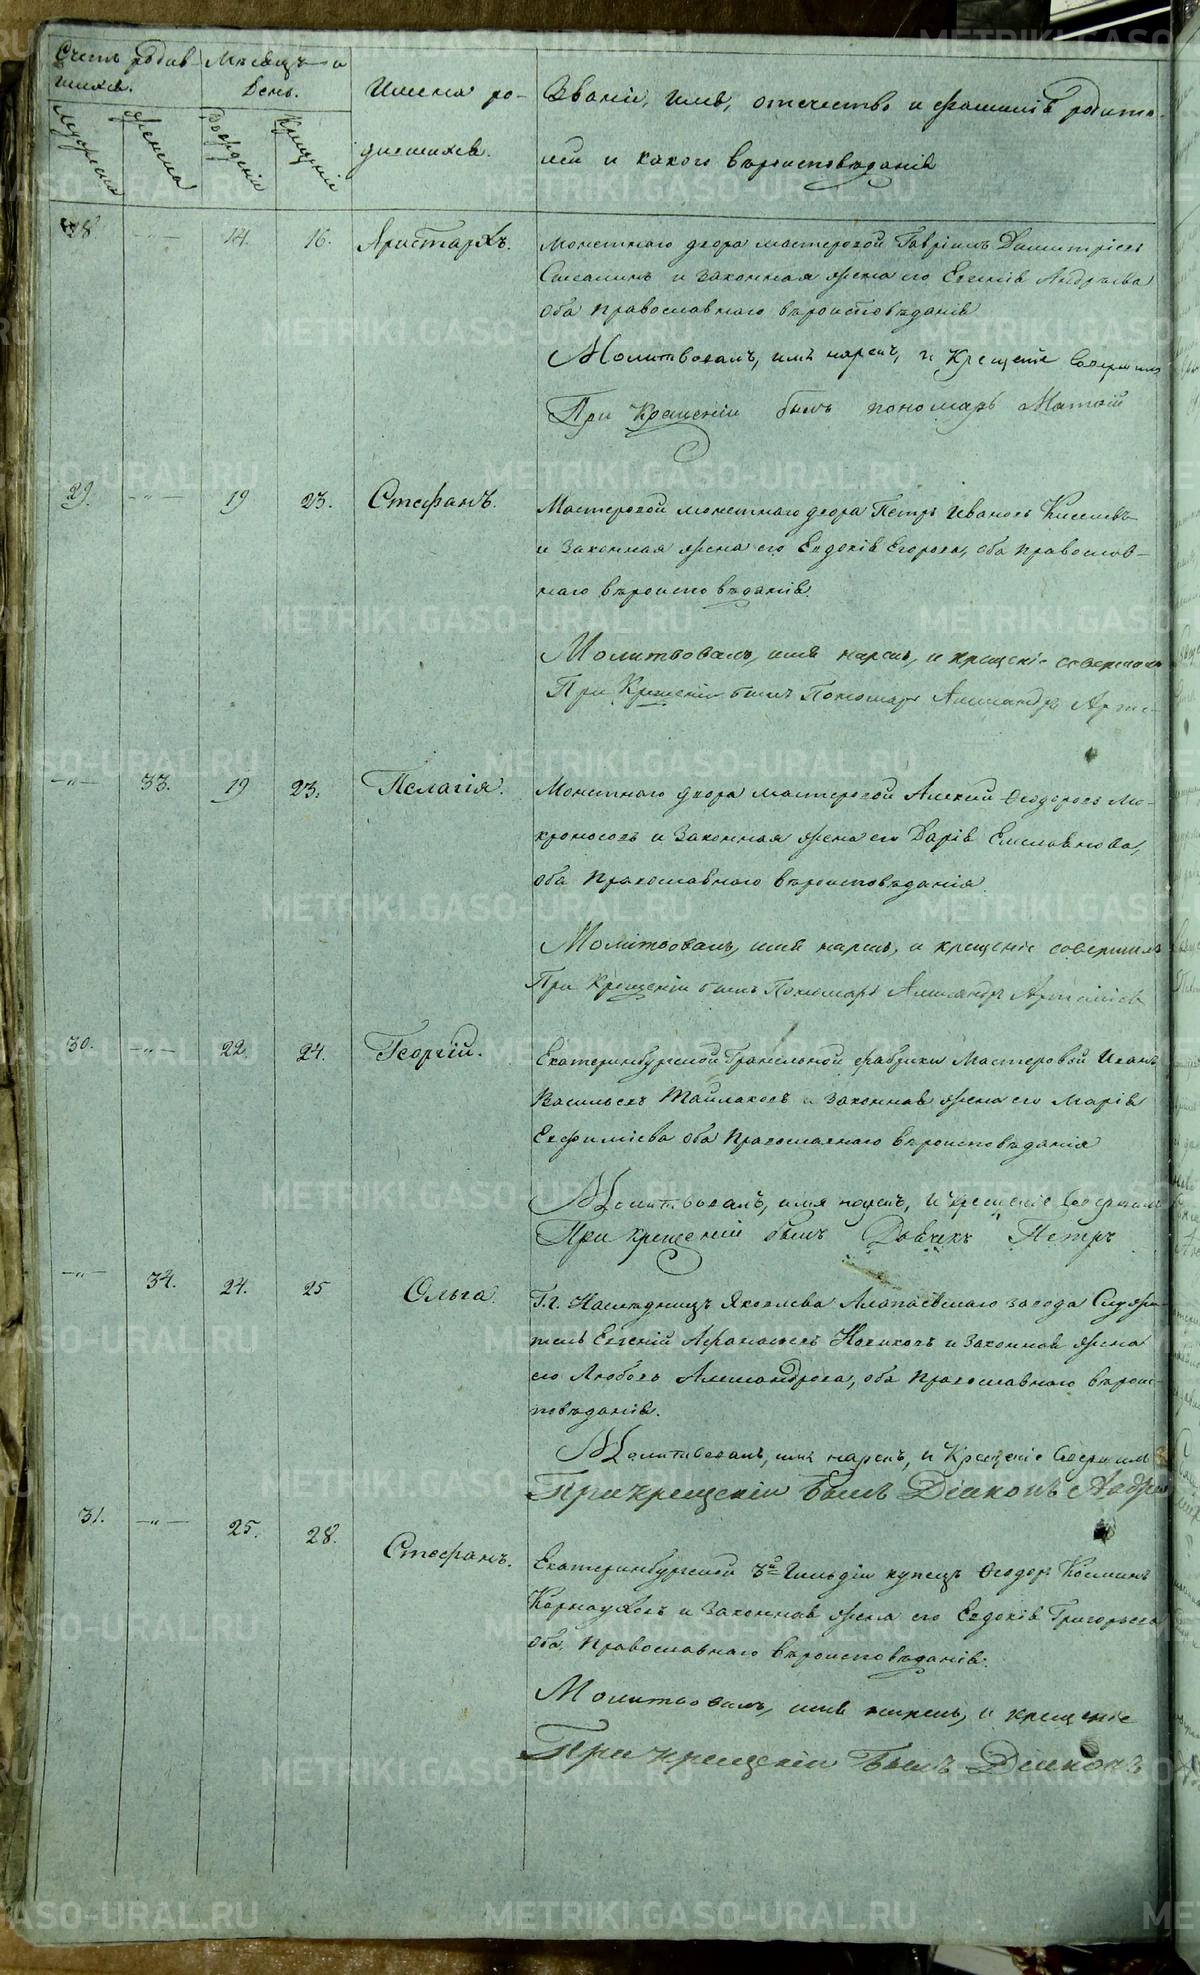 Счетъ родив-
шихся.
Мужеска
Женска
Мѣсяцъ и
день.
Рожденія
Крещенія
Имена ро-
дившихся.
Званіе, имя, отечество и фамилія родите-
лей и какого вѣроисповѣданія
28 —"— 14. 16. Аристархъ.
Монетнаго двора мастеровой Гавріилъ Димитріевъ
и законная жена его Евгенія Андреева
оба православнаго вѣроисповѣданія
Молитвовалъ, имя нарекъ, и Крещеніе совершилъ
При Крещеніи былъ пономарь Матѳій
29. —"— 19 23. Стефанъ.
Мастеровой монетнаго двора Петръ Ивановъ Киселевъ
и законная жена его Евдокія Егорова, оба православ-
наго вѣроисповѣданія.
Молитвовалъ, имя нарекъ, и крещеніе совершилъ
При Крещеніи былъ Пономарь Александръ Арте-
—"— 33. 19 23. Пелагія.
Монетнаго двора мастеровой Алексій Ѳеодоровъ Мо-
кроносовъ и законная жена его Дарія
оба Православнаго вѣроисповѣданія.
Молитвовалъ, имя нарекъ, и крещеніе совершилъ
При Крещеніи былъ Пономарь Александръ Артеміевъ
30. —"— 22. 24. Георгій.
Екатеринбургской Гранильной фабрики Мастеровой Иванъ
Васильевъ и законная жена его Марія
Евфиміева оба Православнаго вѣроисповѣданія
Молитвовалъ, имя нарекъ, и крещеніе совершилъ
При крещеніи былъ Дьячекъ Петръ
—"— 34. 24. 25 Ольга.
Г.г. Наслѣдницъ Яковлева Алапаевскаго завода Служи-
тель Евгеній Аѳанасьевъ Новиковъ и законная жена
его Любовь Александрова, оба православнаго вѣроис-
повѣданія.
Молитвовалъ, имя нарекъ, и Крещеніе Совершилъ
При крещеніи былъ Діаконъ Андрей
31. —"— 25. 28. Стефанъ.
Екатеринбургской 3й Гильдіи купецъ Ѳеодоръ Козминъ
Карнауховъ и законная жена его Евдокія Григорьева
оба Православнаго вѣроисповѣданія.
Молитвовалъ, имя нарекъ, и крещеніе
При крещеніи былъ Діаконъ
METRIKI.GASO-URAL.RU